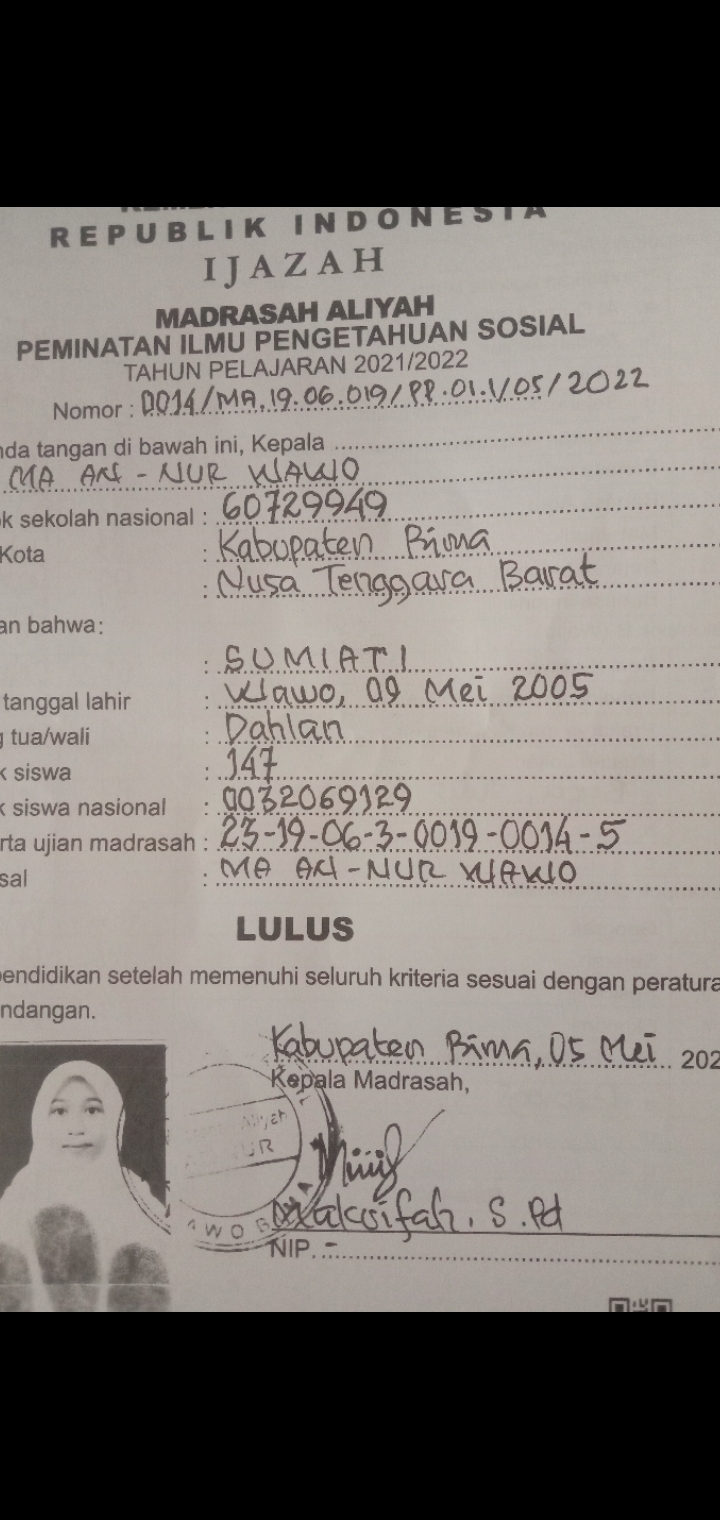 REPUBLIK INDONESIA
IJAZAH
MADRASAH ALIYAH
PEMINATAN ILMU PENGETAHUAN SOSIAL
TAHUN PELAJARAN 2021/2022
Nomor : 0014/MA.19.06.019/PP.01.1/05/2022
nda tangan di bawah ini, Kepala
MA AN-NUR WAWO
k sekolah nasional : 60729949
Kota : Kabupaten Bima
: Nusa Tenggara Barat
an bahwa:
: SUMIATI
tanggal lahir : Wawo, 09 Mei 2005
g tua/wali : Dahlan
k siswa : 147
k siswa nasional : 0032069129
rta ujian madrasah : 23-19-06-3-0019-0014-5
sal : MA AN-NUR WAWO
LULUS
pendidikan setelah memenuhi seluruh kriteria sesuai dengan peratura
ndangan.
Kabupaten Bima, 05 Mei 202
Kepala Madrasah,
S.Pd
NIP. -